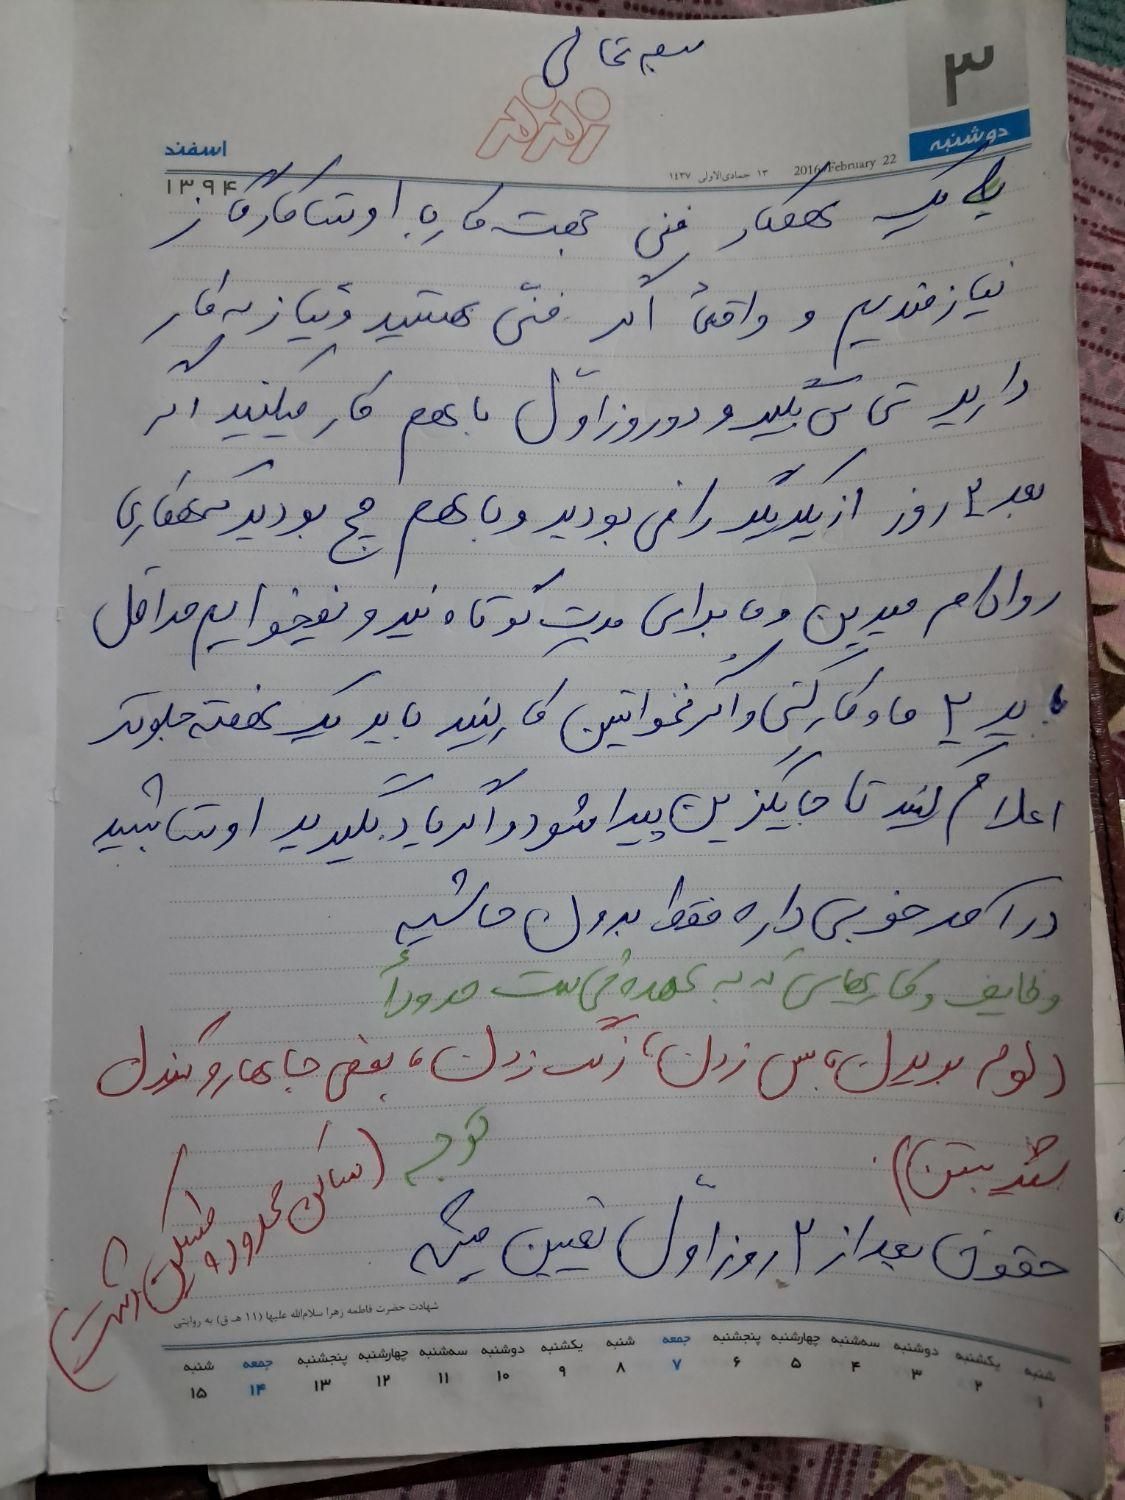 بسمه تعالی
۳
دوشنبه
زمزم
اسفند
۱۳۹۴
۱۳ جمادی‌الاولی ۱۴۳۷
2016 February 22
یک همکار فنی جهت کار با اوستا کار گاز
نیازمندیم و واقعاً اگر فنّی هستید و نیاز به کار
دارید تماس بگیرید و دو روز اوّل با هم کار میکنید اگر
بعد ۲ روز از یکدیگر راضی بودید و با هم مچ بودید همکاری
رو ادامه میدین و ما برای مدت کوتاه نیرو نمیخواهیم حداقل
باید ۲ ماه کار کنی و اگر نخواستین کار کنید باید یک هفته جلوتر
اعلام کنید تا جایگزین پیدا شود و اگر یاد بگیرید اوستا بشید
درآمد خوبی داره فقط بدون حاشیه
وظایف و کارهایی که به عهده شماست حدوداً
(لوله بریدن، بس زدن، رنگ زدن، بعضی جاها رو کندن
بست بستن)
توجه (ساکن محدوده مشکین دشت)
حقوق بعد از ۲ روز اوّل تعیین میشه
شهادت حضرت فاطمه زهرا سلام‌الله علیها (۱۱ هـ ق) به روایتی
شنبه یکشنبه دوشنبه سه‌شنبه چهارشنبه پنجشنبه جمعه شنبه یکشنبه دوشنبه سه‌شنبه چهارشنبه پنجشنبه جمعه شنبه
۱ ۲ ۳ ۴ ۵ ۶ ۷ ۸ ۹ ۱۰ ۱۱ ۱۲ ۱۳ ۱۴ ۱۵